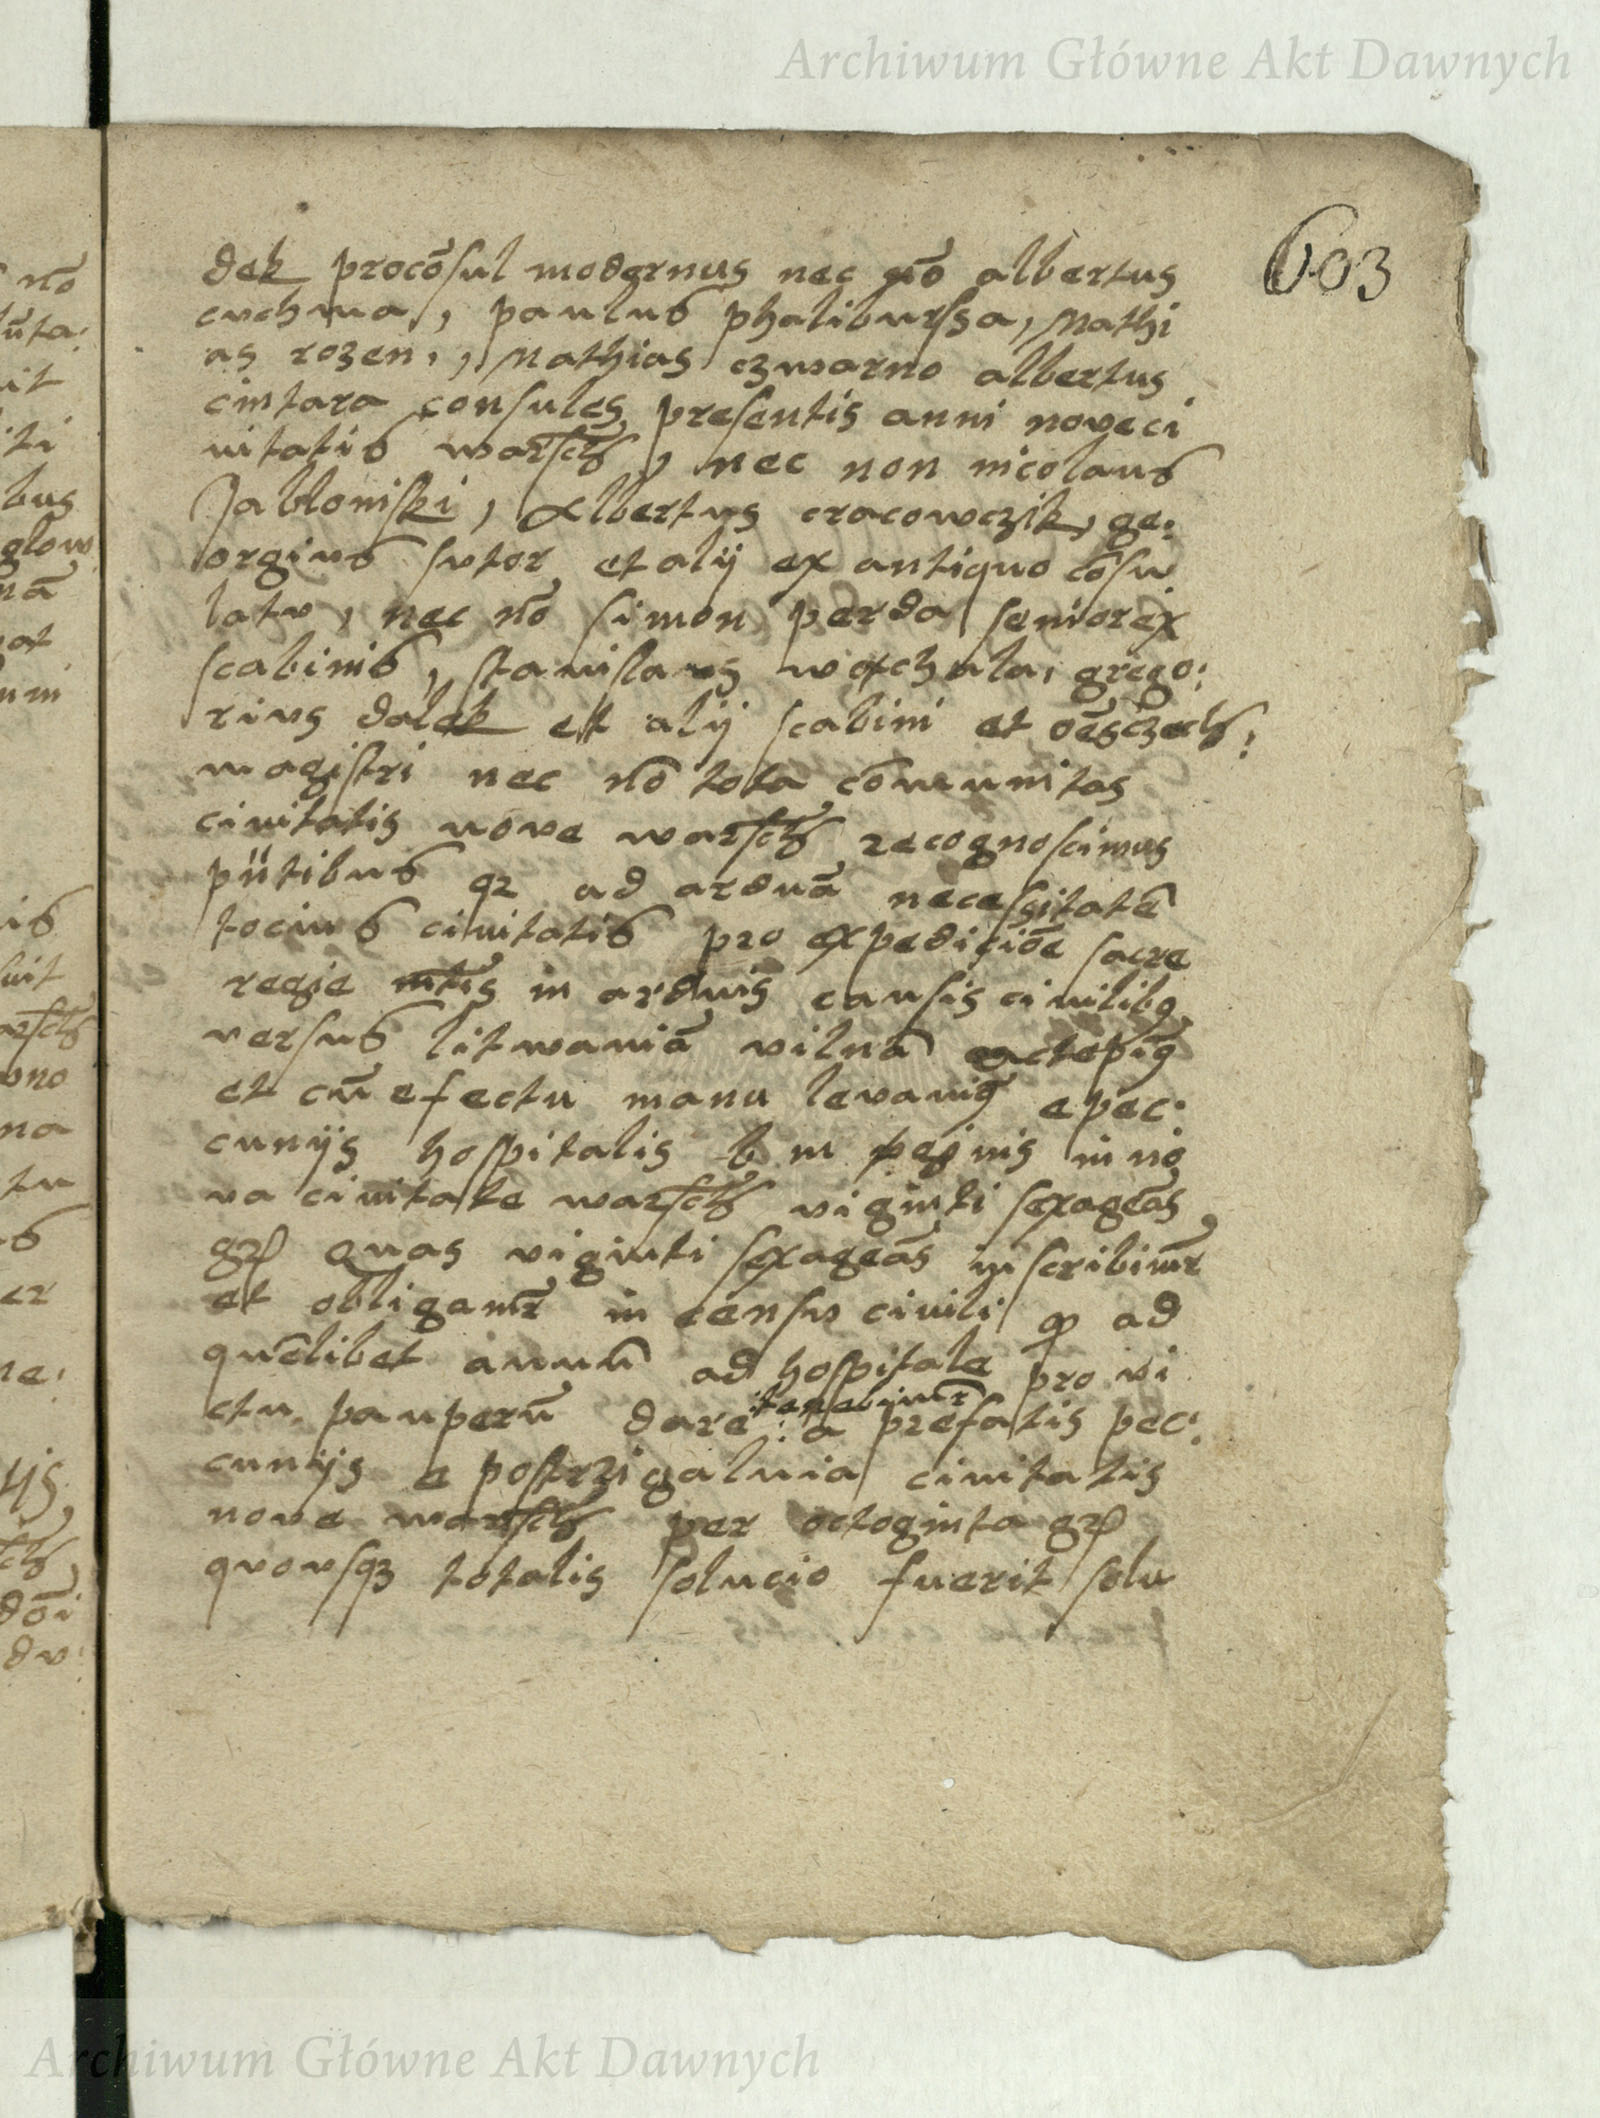 Archiwum Główne Akt Dawnych
603
dek procōsul modernus nec nō albertus
cuchma, paulus phalibursa, Mathi
as rozen, Mathias czwarno albertus
cintara consules presentis anni nove ci
uitatis warsch, nec non nicolaus
Jabloniski, Albertus cracowczik, ge:
orgius sutor et alij ex antiquo cōsu
latu, nec nō simon perda senior ex
scabinis, stanislaus wochala, grego:
rius dolek et alij scabini et oēs czech:
magistri nec nō tota cōmunitas
ciuitatis nove warsch recognoscimus
pñtibus qz ad arduā necessitatē
tocius ciuitatis pro expediciōe sacre
regie mtis in arduis causis ciuilibq
versus litwaniā vilnā
et cū efectu manu levauimq e pec:
cunijs hospitalis b m in no
va ciuitate warsch viginti sexageās
grꝭ quas viginti sexageās inscribimr
et obligamr in censu ciuili ad
quēlibet annū ad hospitale pro vi
ctu pauperū dare tenebimr a prefatis pec:
cunijs e postrzigalnia ciuitatis
nove warsch per octoginta grꝭ
quousqz totalis solucio fuerit solu
nō
ūta:
uit
iti
bus
glow
nā
at
is
uit
arsch
ono
na
tu
er
ne:
ijs,
dōi
du
Archiwum Główne Akt Dawnych